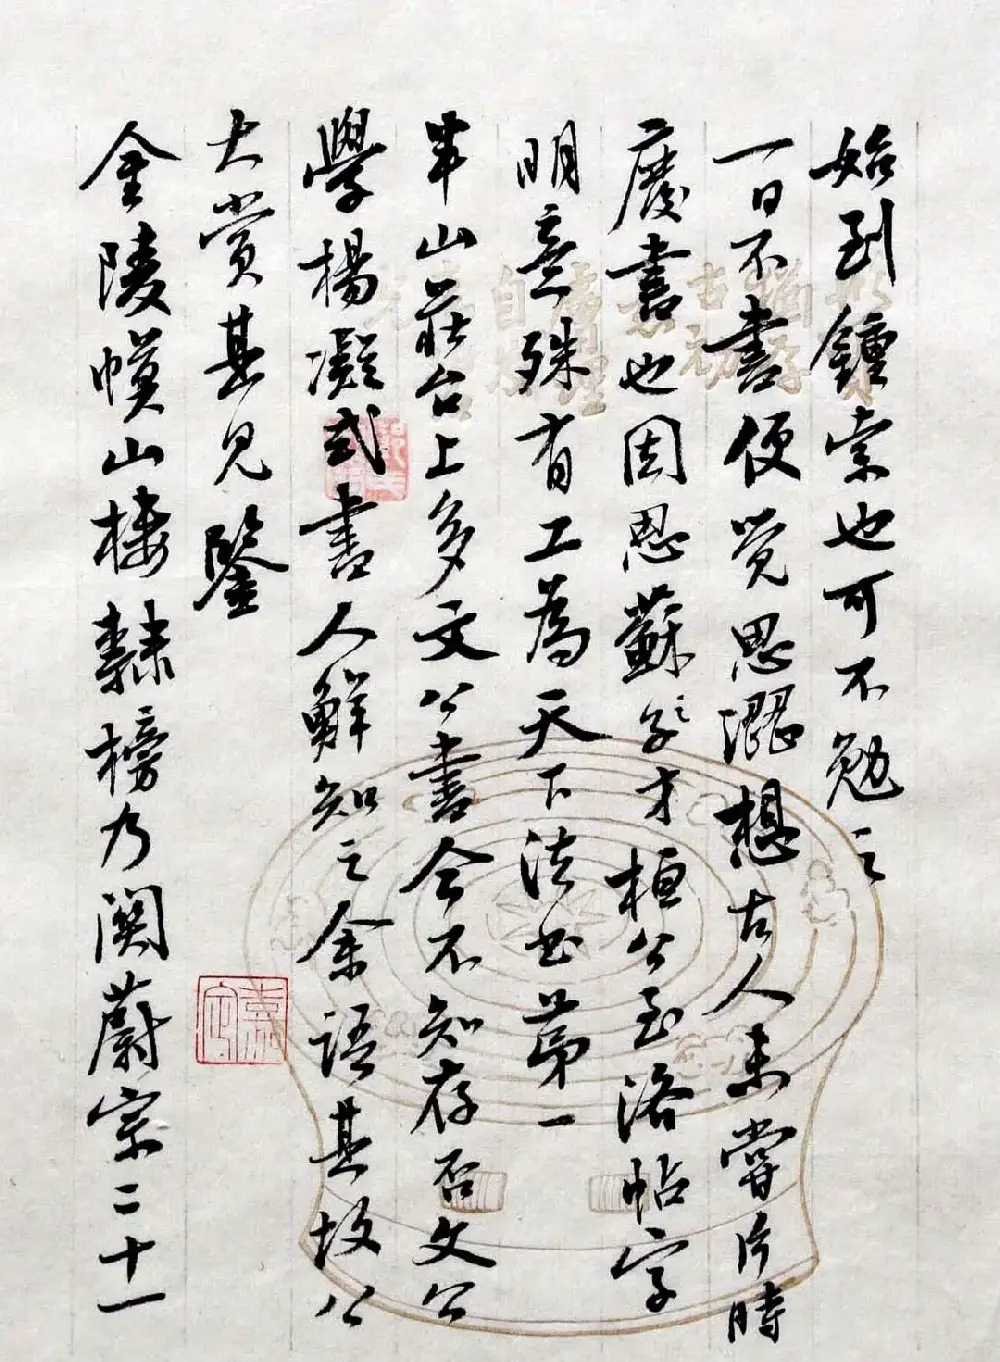 始到鍾索也可不勉之
一日不書便覺思澀想古人未嘗片時
廢書也因思蘇之才桓公至洛帖字
明意殊有工為天下法書第一
半山莊台上多文公書今不知存否文公
學楊凝式書人鮮知之余語其故公
大賞其見鑒
金陵幙山樓隸榜乃關蔚宗二十一